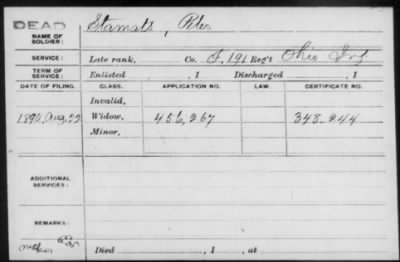 DEAD
NAME OF SOLDIER: Stamats, Peter
SERVICE: Late rank, Co. F, 191 Reg't Ohio Inf
TERM OF SERVICE: Enlisted , 1 Discharged , 1
DATE OF FILING. CLASS. APPLICATION NO. LAW. CERTIFICATE NO.
Invalid,
1890, Aug, 22 Widow, 456,267 348,244
Minor,
ADDITIONAL SERVICES:
REMARKS:
Died , 1 , at